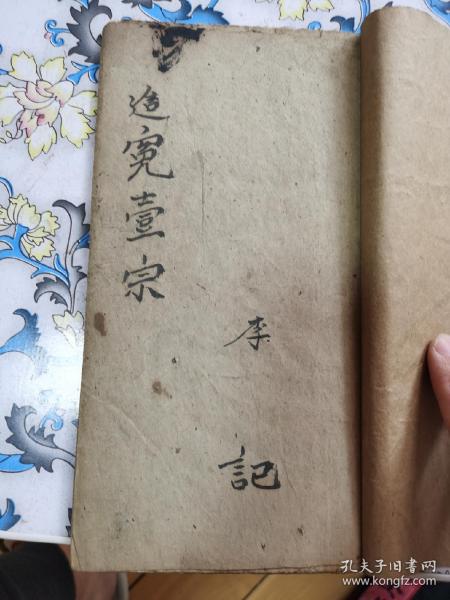 造冤壹宗
李記
孔夫子旧书网
www.kongfz.com